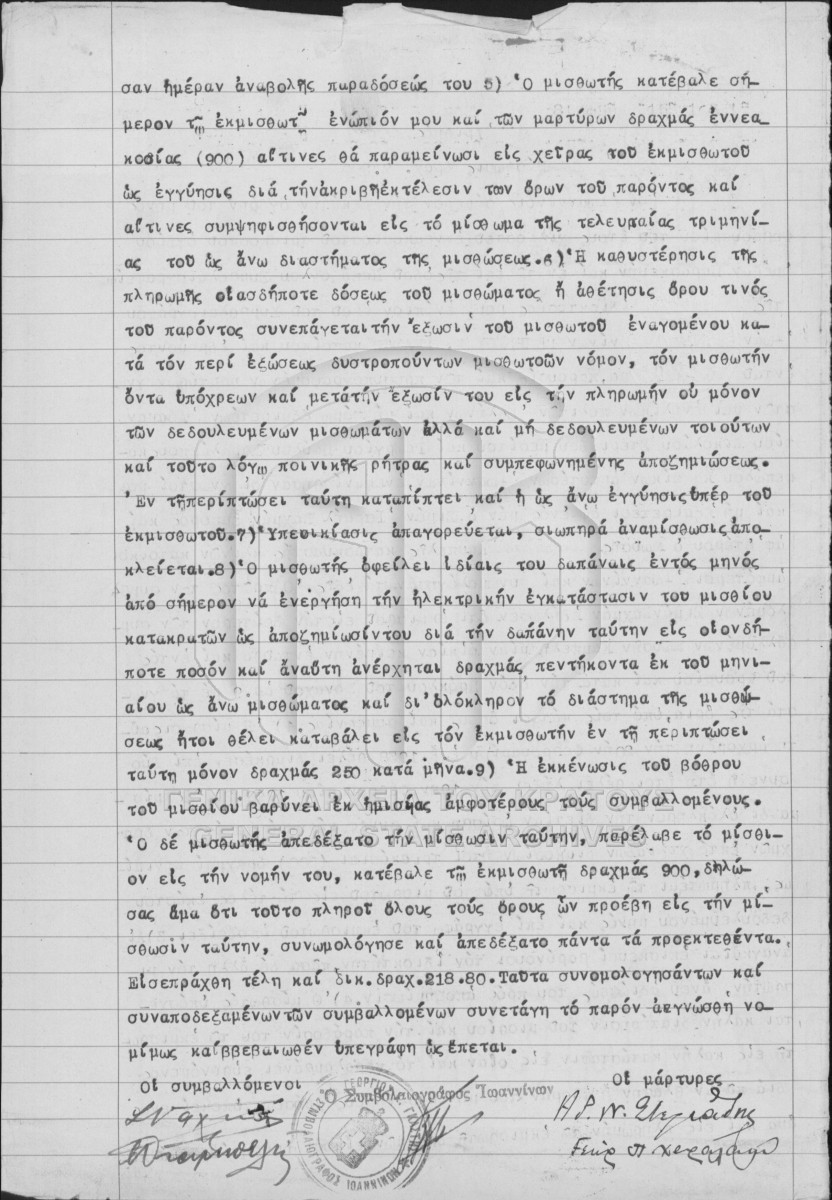 σαν ἡμέραν ἀναβολῆς παραδόσεώς του 5) Ὁ μισθωτής κατέβαλε σή-
μερον τῷ ἐκμισθωτῇ ἐνώπιόν μου καί τῶν μαρτύρων δραχμάς ἐννεα-
κοσίας (900) αἵτινες θά παραμείνωσι εἰς χεῖρας τοῦ ἐκμισθωτοῦ
ὡς ἐγγύησις διά τήνἀκριβῆἐκτέλεσιν των ὅρων τοῦ παρόντος καί
αἵτινες συμψηφισθήσονται εἰς τό μίσθωμα τῆς τελευταίας τριμηνί-
ας τοῦ ὡς ἄνω διαστήματος τῆς μισθώσεως.6) Ἡ καθυστέρησις τῆς
πληρωμῆς οἱασδήποτε δόσεως τοῦ μισθώματος ἤ ἀθέτησις ὅρου τινός
τοῦ παρόντος συνεπάγεται τήν ἔξωσιν τοῦ μισθωτοῦ ἐναγομένου κα-
τά τόν περί ἐξώσεως δυστροπούντων μισθωτοῶν νόμον, τόν μισθωτήν
ὄντα ὑπόχρεων καί μετάτήν ἔξωσίν του εἰς τήν πληρωμήν οὐ μόνον
τῶν δεδουλευμένων μισθωμάτων ἀλλά καί μή δεδουλευμένων τοιούτων
καί τοῦτο λόγῳ ποινικῆς ρήτρας καί συμπεφωνημένης ἀποζημιώσεως.
Ἐν τῇπεριπτώσει ταύτη καταπίπτει καί ἡ ὡς ἄνω ἐγγύησις ὑπέρ τοῦ
ἐκμισθωτοῦ.7) Ὑπεοικίασις ἀπαγορεύεται, σιωπηρά ἀναμίσθωσις ἀπο-
κλείεται.8) Ὁ μισθωτής ὀφείλει ἰδίαις του δαπάναις ἐντός μηνός
ἀπό σήμερον νά ἐνεργήσῃ τήν ἠλεκτρικήν ἐγκατάστασιν τοῦ μισθίου
κατακρατῶν ὡς ἀποζημίωσίντου διά τήν δαπάνην ταύτην εἰς οἱονδή-
ποτε ποσόν καί ἄναὕτη ἀνέρχηται δραχμάς πεντήκοντα ἐκ τοῦ μηνι-
αίου ὡς ἄνω μισθώματος καί δι'ὁλόκληρον τό διάστημα τῆς μισθώ-
σεως ἤτοι θέλει καταβάλει εἰς τόν ἐκμισθωτήν ἐν τῇ περιπτώσει
ταύτῃ μόνον δραχμάς 250 κατά μῆνα.9) Ἡ ἐκκένωσις τοῦ βόθρου
τοῦ μισθίου βαρύνει ἐκ ἡμισείας ἀμφοτέρους τούς συμβαλλομένους.
ΓΕΝΙΚΑ ΑΡΧΕΙΑ ΤΟΥ ΚΡΑΤΟΥΣ
GENERAL STATE ARCHIVES
Ὁ δέ μισθωτής ἀπεδέξατο τήν μίσθωσιν ταύτην, παρέλαβε τό μίσθι-
ον εἰς τήν νομήν του, κατέβαλε τῷ ἐκμισθωτῇ δραχμάς 900,δηλώ-
σας ἅμα ὅτι τοῦτο πληροῖ ὅλους τούς ὅρους ὧν προέβη εἰς τήν μί-
σθωσιν ταύτην, συνωμολόγησε καί ἀπεδέξατο πάντα τά προεκτεθέντα.
Εἰσεπράχθη τέλη καί δικ.δραχ.218.80.Ταῦτα συνομολογησάντων καί
συναποδεξαμένωντῶν συμβαλλομένων συνετάγη τό παρόν ἀεγνώσθη νο-
μίμως καίββεβαιωθέν ὑπεγράφη ὡς ἕπεται.
Οἱ συμβαλλόμενοι
Ὁ Συμβολαιογράφος Ἰωαννίνων
Οἱ μάρτυρες